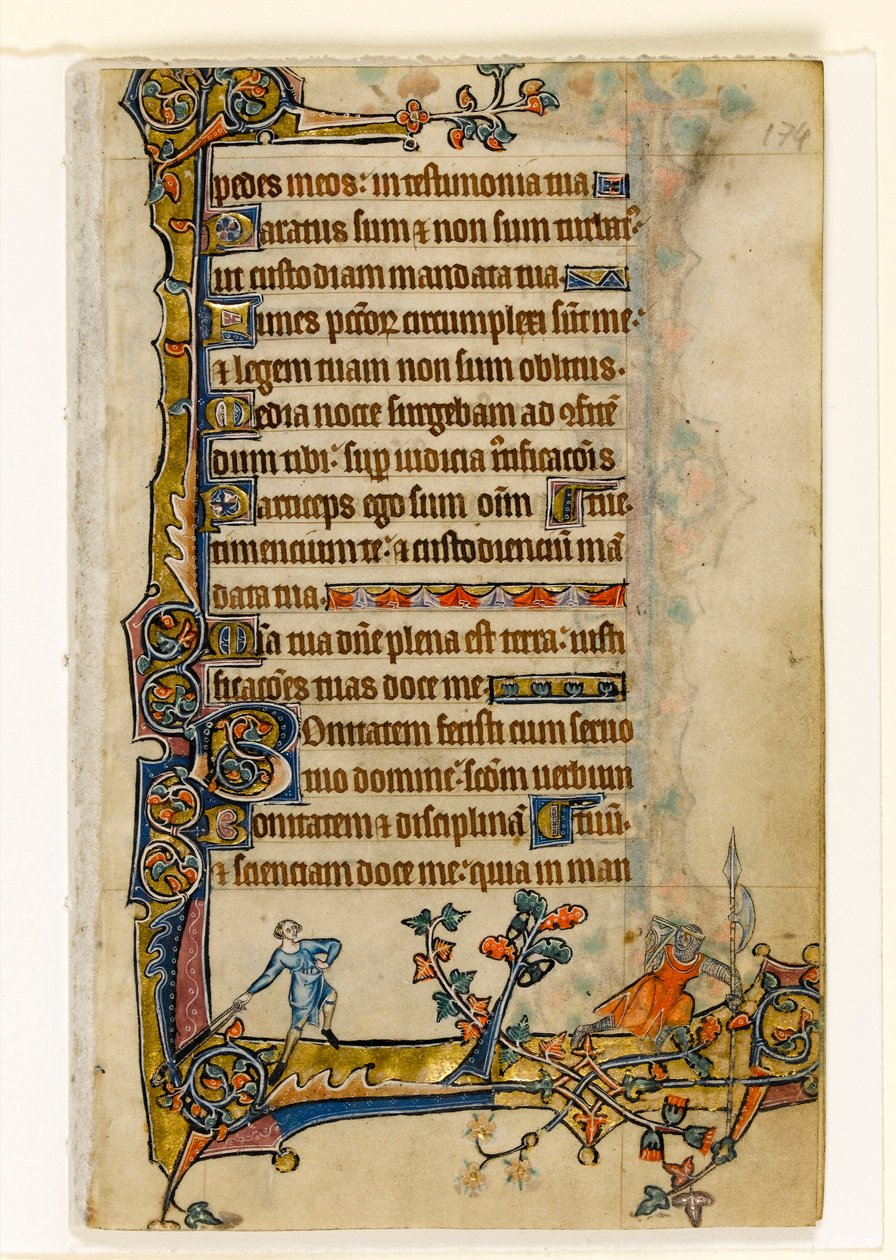 174
pedes meos: in testimonia tua
Paratus sum & non sum turbat᷒:
ut custodiam mandata tua.
Funes pctō℞ circumplexi sūt me:
& legem tuam non sum oblitus.
Media nocte surgebam ad ꝯfitē
dum tibi: sup iudicia iustificacōis
Particeps ego sum oīm tue.
timencium te: & custodienciū mā
data tua.
Mīa tua dn̄e plena est terra: iusti
ficacōes tuas doce me.
Bonitatem fecisti cum seruo
tuo domine: scd̄m uerbum
Bonitatem & disciplinā tuū.
& scienciam doce me: quia in man